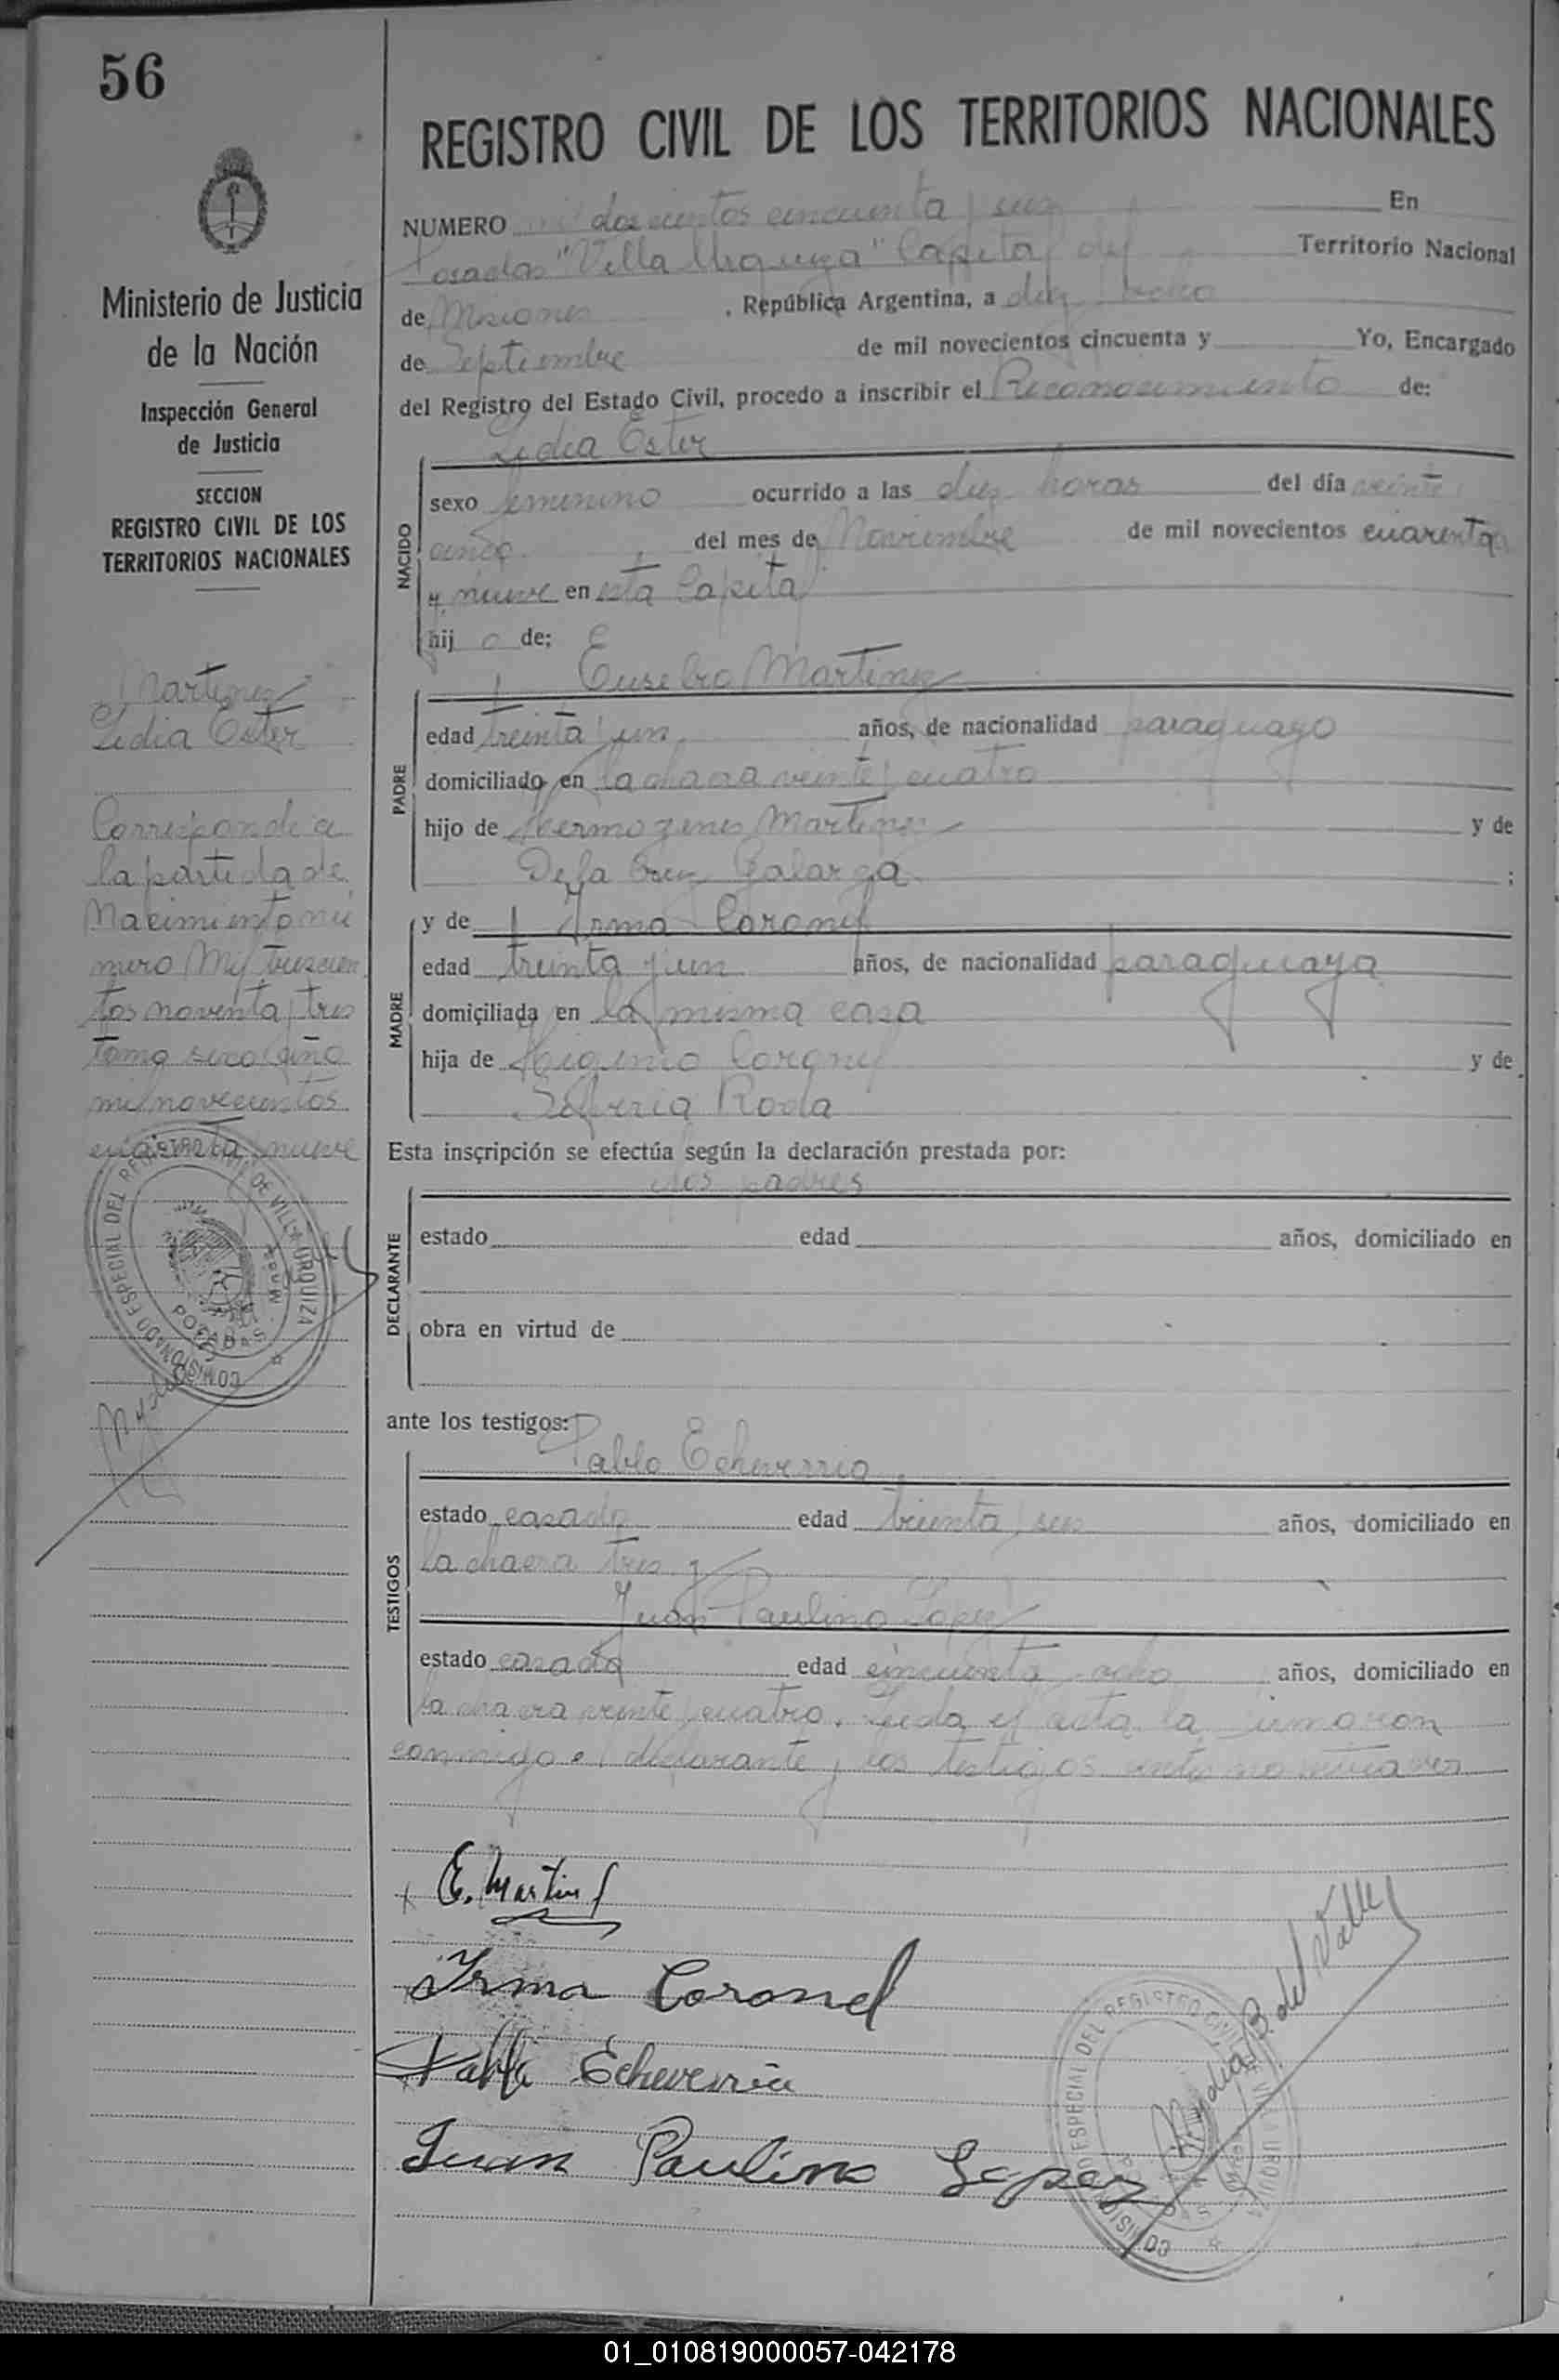 56
Ministerio de Justicia
de la Nación
Inspección General
de Justicia
SECCION
REGISTRO CIVIL DE LOS
TERRITORIOS NACIONALES
Martinez
Lidia Ester
Corresponde a
la partida de
Nacimiento nú
mero Mil trescien
tos noventa y tres
tomo año
mil novecientos
cuarenta y nueve
COMISIONADO ESPECIAL DEL REGISTRO CIVIL DE VILLA URQUIZA
POSADAS
REGISTRO CIVIL DE LOS TERRITORIOS NACIONALES
NUMERO mil doscientos cincuenta y seis En
Posadas "Villa Urquiza" Capital del Territorio Nacional
de Misiones , República Argentina, a diez y ocho
de Septiembre de mil novecientos cincuenta y Yo, Encargado
del Registro del Estado Civil, procedo a inscribir el Reconocimiento de:
NACIDO
Lidia Ester
sexo femenino ocurrido a las diez horas del día veinte
cinco del mes de Noviembre de mil novecientos cuarenta
y nueve en esta Capital
hij a de:
PADRE
Eusebio Martinez
edad treinta y un años, de nacionalidad paraguayo
domiciliado en la chacra veinte y cuatro
hijo de Hermogenes Martinez y de
De la Cruz Galarza ;
MADRE
y de Irma Coronel
edad treinta y un años, de nacionalidad paraguaya
domiciliada en la misma casa
hija de Higinio Coronel y de
Roda
Esta inscripción se efectúa según la declaración prestada por:
DECLARANTE
los padres
estado edad años, domiciliado en
obra en virtud de
ante los testigos:
TESTIGOS
Pablo Echeverria
estado casado edad treinta y años, domiciliado en
la chacra tres y
Juan Paulino Lopez
estado casado edad cincuenta y ocho años, domiciliado en
la chacra veinte y cuatro. Leida el acta la firmaron
conmigo el declarante y los testigos
E. Martinez
Irma Coronel
Pablo Echeverria
Juan Paulino Lopez
Nydia B. del Valle
COMISIONADO ESPECIAL DEL REGISTRO CIVIL DE VILLA URQUIZA
01_010819000057-042178